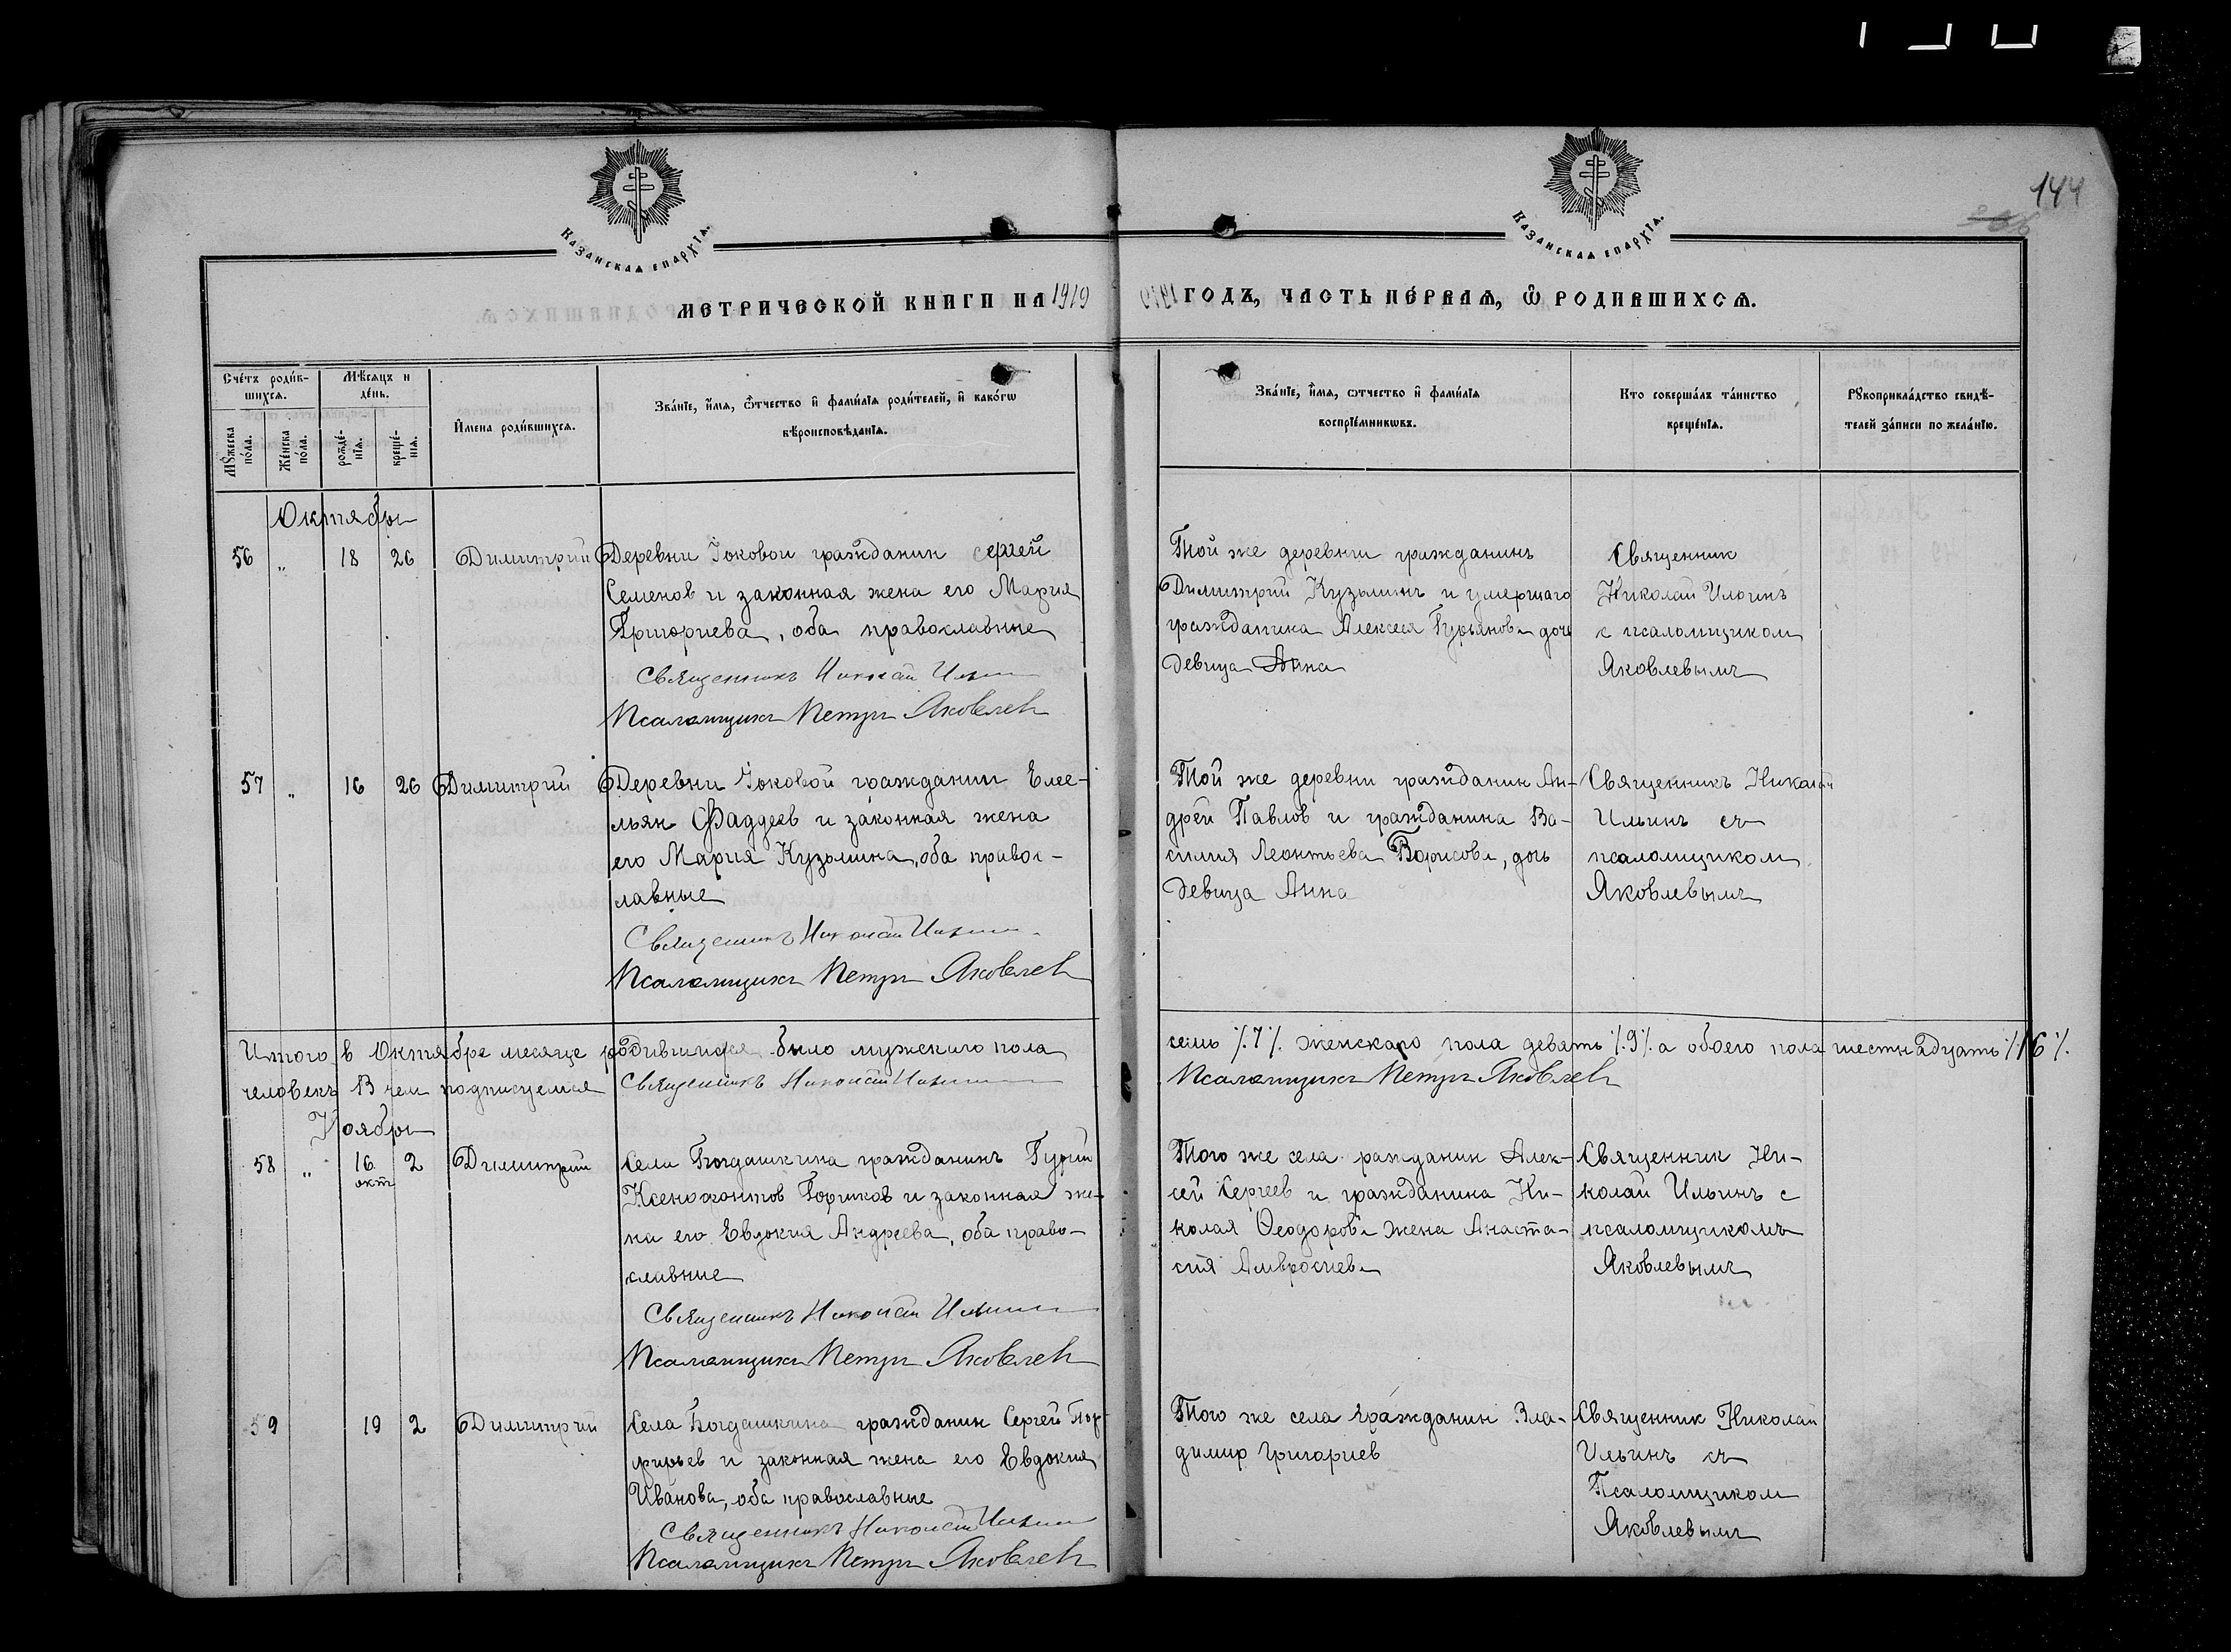 144
Казанская епархїя.
Казанская епархїя.
МЕТРИЧЕСКОЙ КНИГИ НА 1919
ГОДЪ, ЧАСТЬ ПЕРВАЯ, Ѿ РОДИВШИХСЯ.
Счетъ родив-
шихся.
Мѣсяцъ и
день.
Мужеска
пола.
Женска
пола.
рожде-
нїя.
креще-
нїя.
Имена родившихся.
Званїе, имя, отчество и фамилїя родителей, и какогѡ
вѣроисповѣданїя.
Званїе, имя, отчество и фамилїя
воспрїемниковъ.
Кто совершалъ таинство
крещенїя.
Рукоприкладство свидѣ-
телей записи по желанїю.
Октябрь
56 " 18 26 Димитрий
Деревни Токовой гражданин Сергей
Семенов и законная жена его Мария
Григориева, оба православные
Священникъ Николай Ильин
Псаломщикъ Петръ Яковлев
Той же деревни гражданинъ
Димитрий Кузьминъ и умершаго
гражданина Алексея Гурьянова дочь
девица Анна
Священник
Николай Ильинъ
с псаломщиком
Яковлевымъ
57 " 16 26 Димитрий
Деревни Токовой гражданин Емел-
льян Фаддеев и законная жена
его Мария Кузьмина, оба правос-
лавные
Священникъ Николай Ильин
Псаломщикъ Петръ Яковлев
Той же деревни гражданин Ан-
дрей Павлов и гражданина Ва-
силия Леонтьева Борисова, дочь
девица Анна
Священникъ Николай
Ильинъ съ
псаломщиком
Яковлевымъ
Итого в Октябре месяце родившихся было мужского пола
семь /.7/. женскаго пола девять /.9/. а обоего пола шестнадцать /.16/.
человекъ В чем подписуемся Священникъ Николай Ильин
Псаломщикъ Петръ Яковлев
Ноябрь
58 " 16 окт 2 Димитрий
Села Богдашкина гражданинъ Гурий
Ксенофонтов и законная же-
на его Евдокия Андреева, оба право-
славные
Священникъ Николай Ильин
Псаломщикъ Петръ Яковлев
Того же села ражданин Алек-
сей Сергеев и гражданина Ни-
колая Феодорова жена Анаста-
сия Амвросиева
Священник Ни-
колай Ильинъ с
псаломщикомъ
Яковлевымъ
59 19 2 Димитрий
Села Богдашкина гражданин Сергей Пор-
фирьев и законная жена его Евдокия
Иванова, оба православные
Священникъ Николай Ильин
Псаломщикъ Петръ Яковлев
Того же села гражданин Вла-
димир Григориев
Священник Николай
Ильинъ съ
Псаломщиком
Яковлевымъ